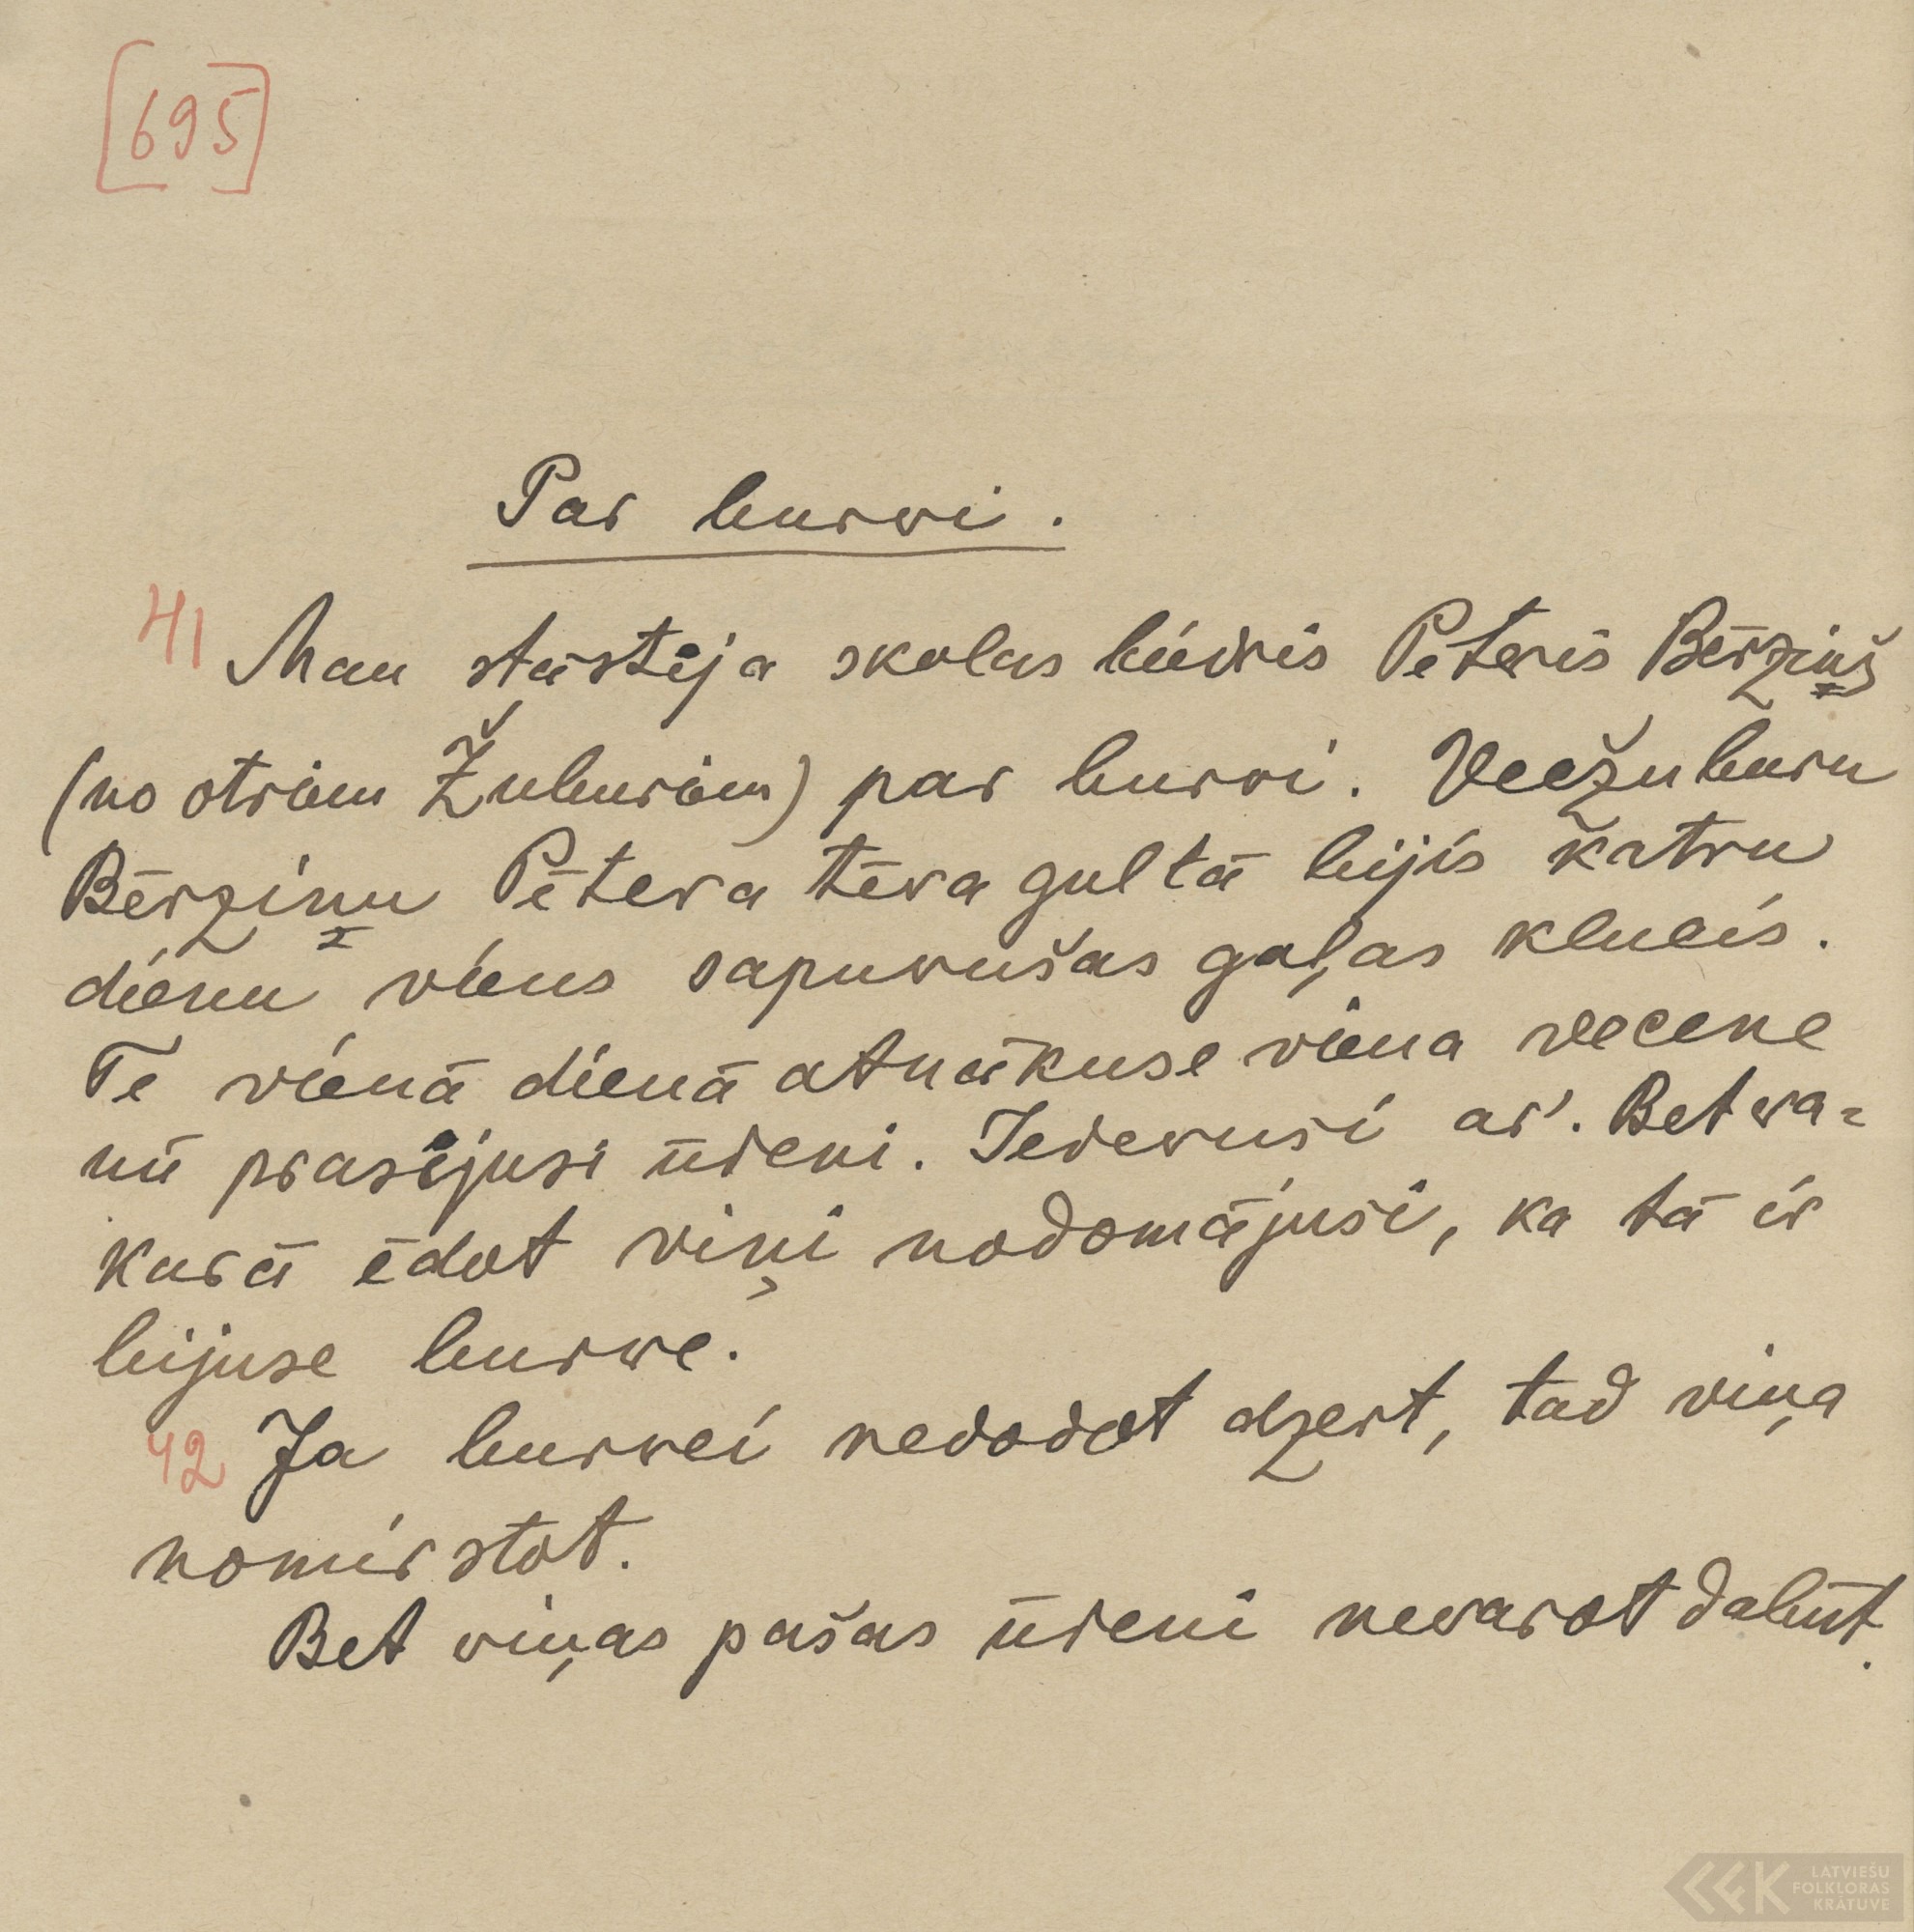 [695]
Par burwi.
41 Man stāstēja skolas biedris Pēteris Bērziņš
(no otriem Žuburiem) par burwi. Veežuburu
Bērziņu Pētera tēva gultā bijis katru
dienu viens sapuwušas gaļas klucis.
Te vienā dienā atnākuse viena vecene
un prasījusi ūdeni. Iedewusi ar'. Bet wa=
karā ēdot viņi nodomājusi, ka tā ir
bijuse burwe.
42 Ja burwei nedodot dzert, tad viņa
nomirstot.
Bet viņas pašas ūdeni newarot dabūt.
LATVIEŠU
FOLKLORAS
KRĀTUVE